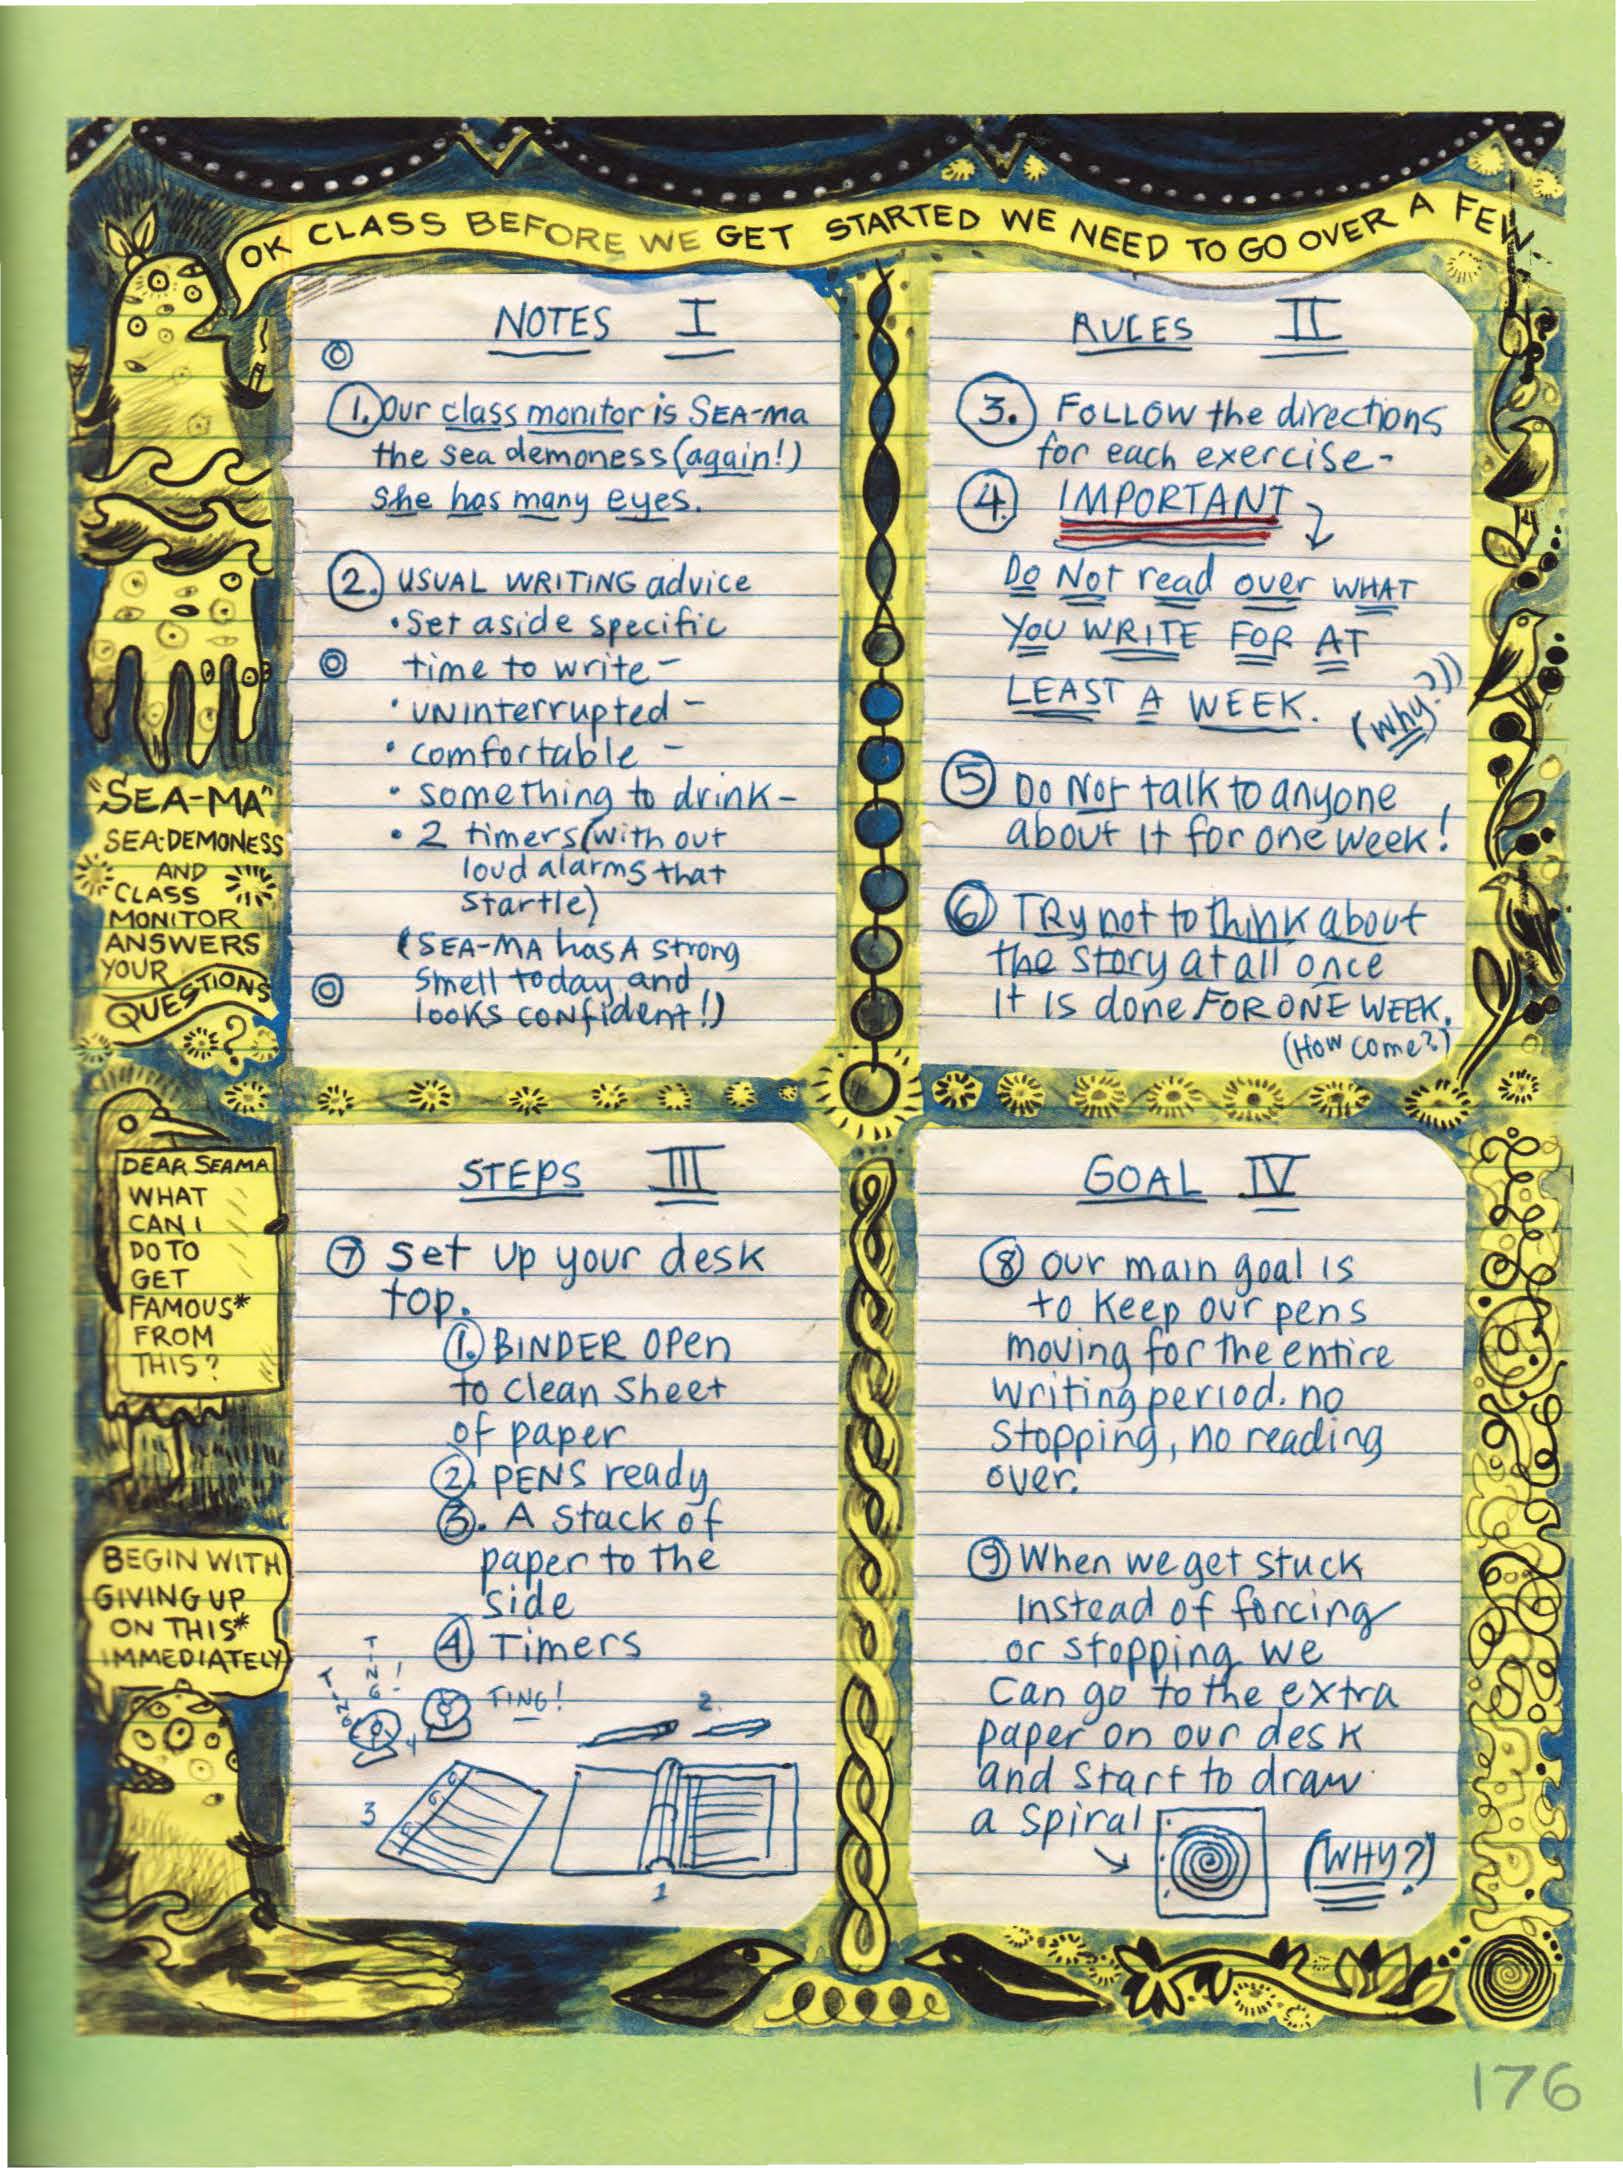 OK CLASS BEFORE WE GET STARTED WE NEED TO GO OVER A FEW..
NOTES I
1. Our class monitor is SEA-ma
the sea demoness (again!)
She has many eyes.
2. USUAL WRITING advice
• Set aside specific
time to write –
• UNinterrupted –
• comfortable –
• something to drink –
• 2 timers (with out
loud alarms that
startle)
(SEA-MA has A strong
smell today and
looks confident!)
RULES II
3. FOLLOW the directions
for each exercise –
4. IMPORTANT
Do Not read over WHAT
YOU WRITE FOR AT
LEAST A WEEK.
(Why?))
5 Do Not talk to anyone
about it for one week!
6 TRy not to think about
the story at all once
It Is done FOR ONE WEEK.
(How come?)
"SEA-MA"
SEA-DEMONESS
AND
CLASS
MONITOR
ANSWERS
YOUR
QUESTIONS
?
DEAR SEAMA
WHAT
CAN I
DO TO
GET
FAMOUS*
FROM
THIS?
BEGIN WITH
GIVING UP
ON THIS*
IMMEDIATELY
STEPS III
7 Set up your desk
top.
1. BINDER Open
to clean sheet
of paper
2. PENS ready
3. A Stack of
paper to the
side
4 Timers
TING!
TING!
TING!
4
2.
3
1
GOAL IV
8 Our main goal is
to keep our pens
moving for the entire
writing period. no
stopping, no reading
over.
9 When we get stuck
Instead of forcing
or stopping we
can go to the extra
paper on our desk
and start to draw
a spiral
(WHY?)
176